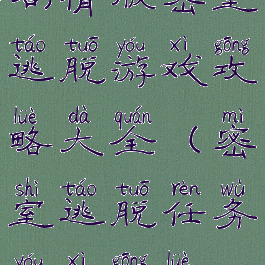 táo tuō yóu xì gōng
逃脱游戏攻
lüè dà quán mì
略大全（密
shì táo tuō rèn wù
室逃脱任务
yóu xì gōng lüè